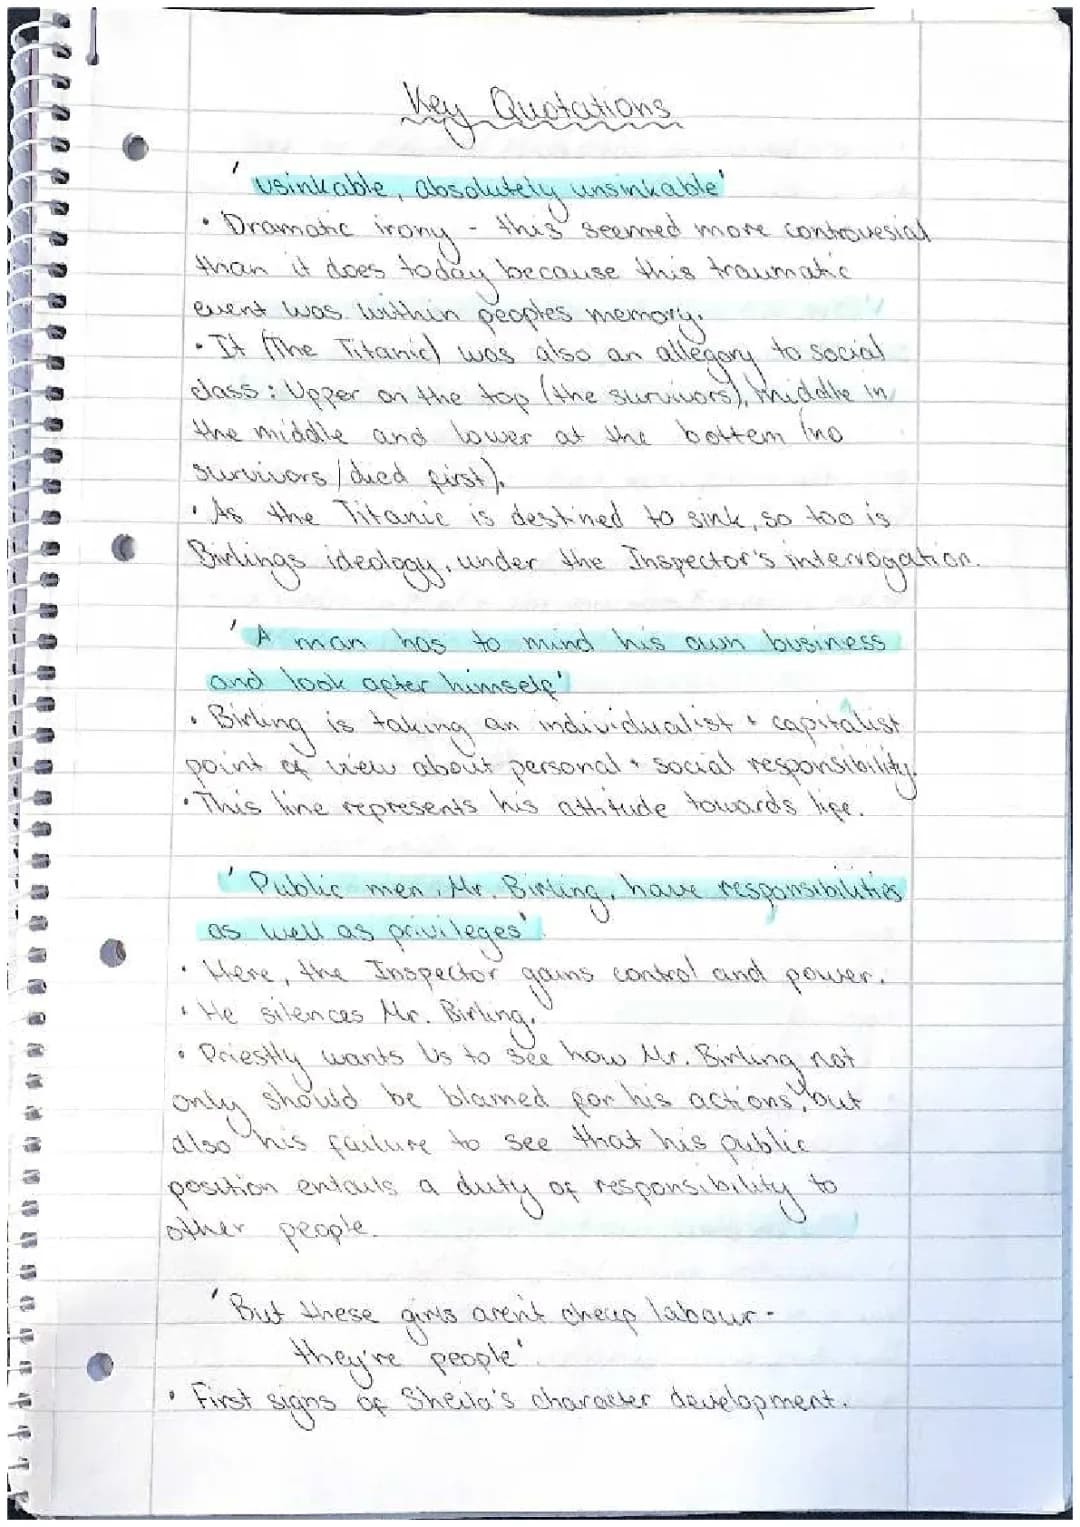 Key Quotations
'usinkable, absolutely unsinkable'
• Dramatic irony - this seemed more controvesial
than it does today because this traumatic
event was within peoples memory.
• It (The Titanic) was also an allegory to social
class: Upper on the top (the survivors), middle in
the middle and lower at the bottem (no
survivors/died first).
• As the Titanic is destined to sink, so too is
Birlings ideology, under the Inspector's interrogation.
'A man has to mind his own business
and look after himself'
• Birling is taking an individualist + capitalist
point of view about personal + social responsibility.
• This line represents his attitude towards life.
'Public men, Mr. Birling, have responsibilities
as well as privileges'.
• Here, the Inspector gains control and power.
• He silences Mr. Birling.
• Priestly wants us to see how Mr. Birling not
only should be blamed for his actions, but
also his failure to see that his public
position entails a duty of responsibility to
other people.
'But these girls aren't cheap labour -
they're people'.
• First signs of Sheila's character development.